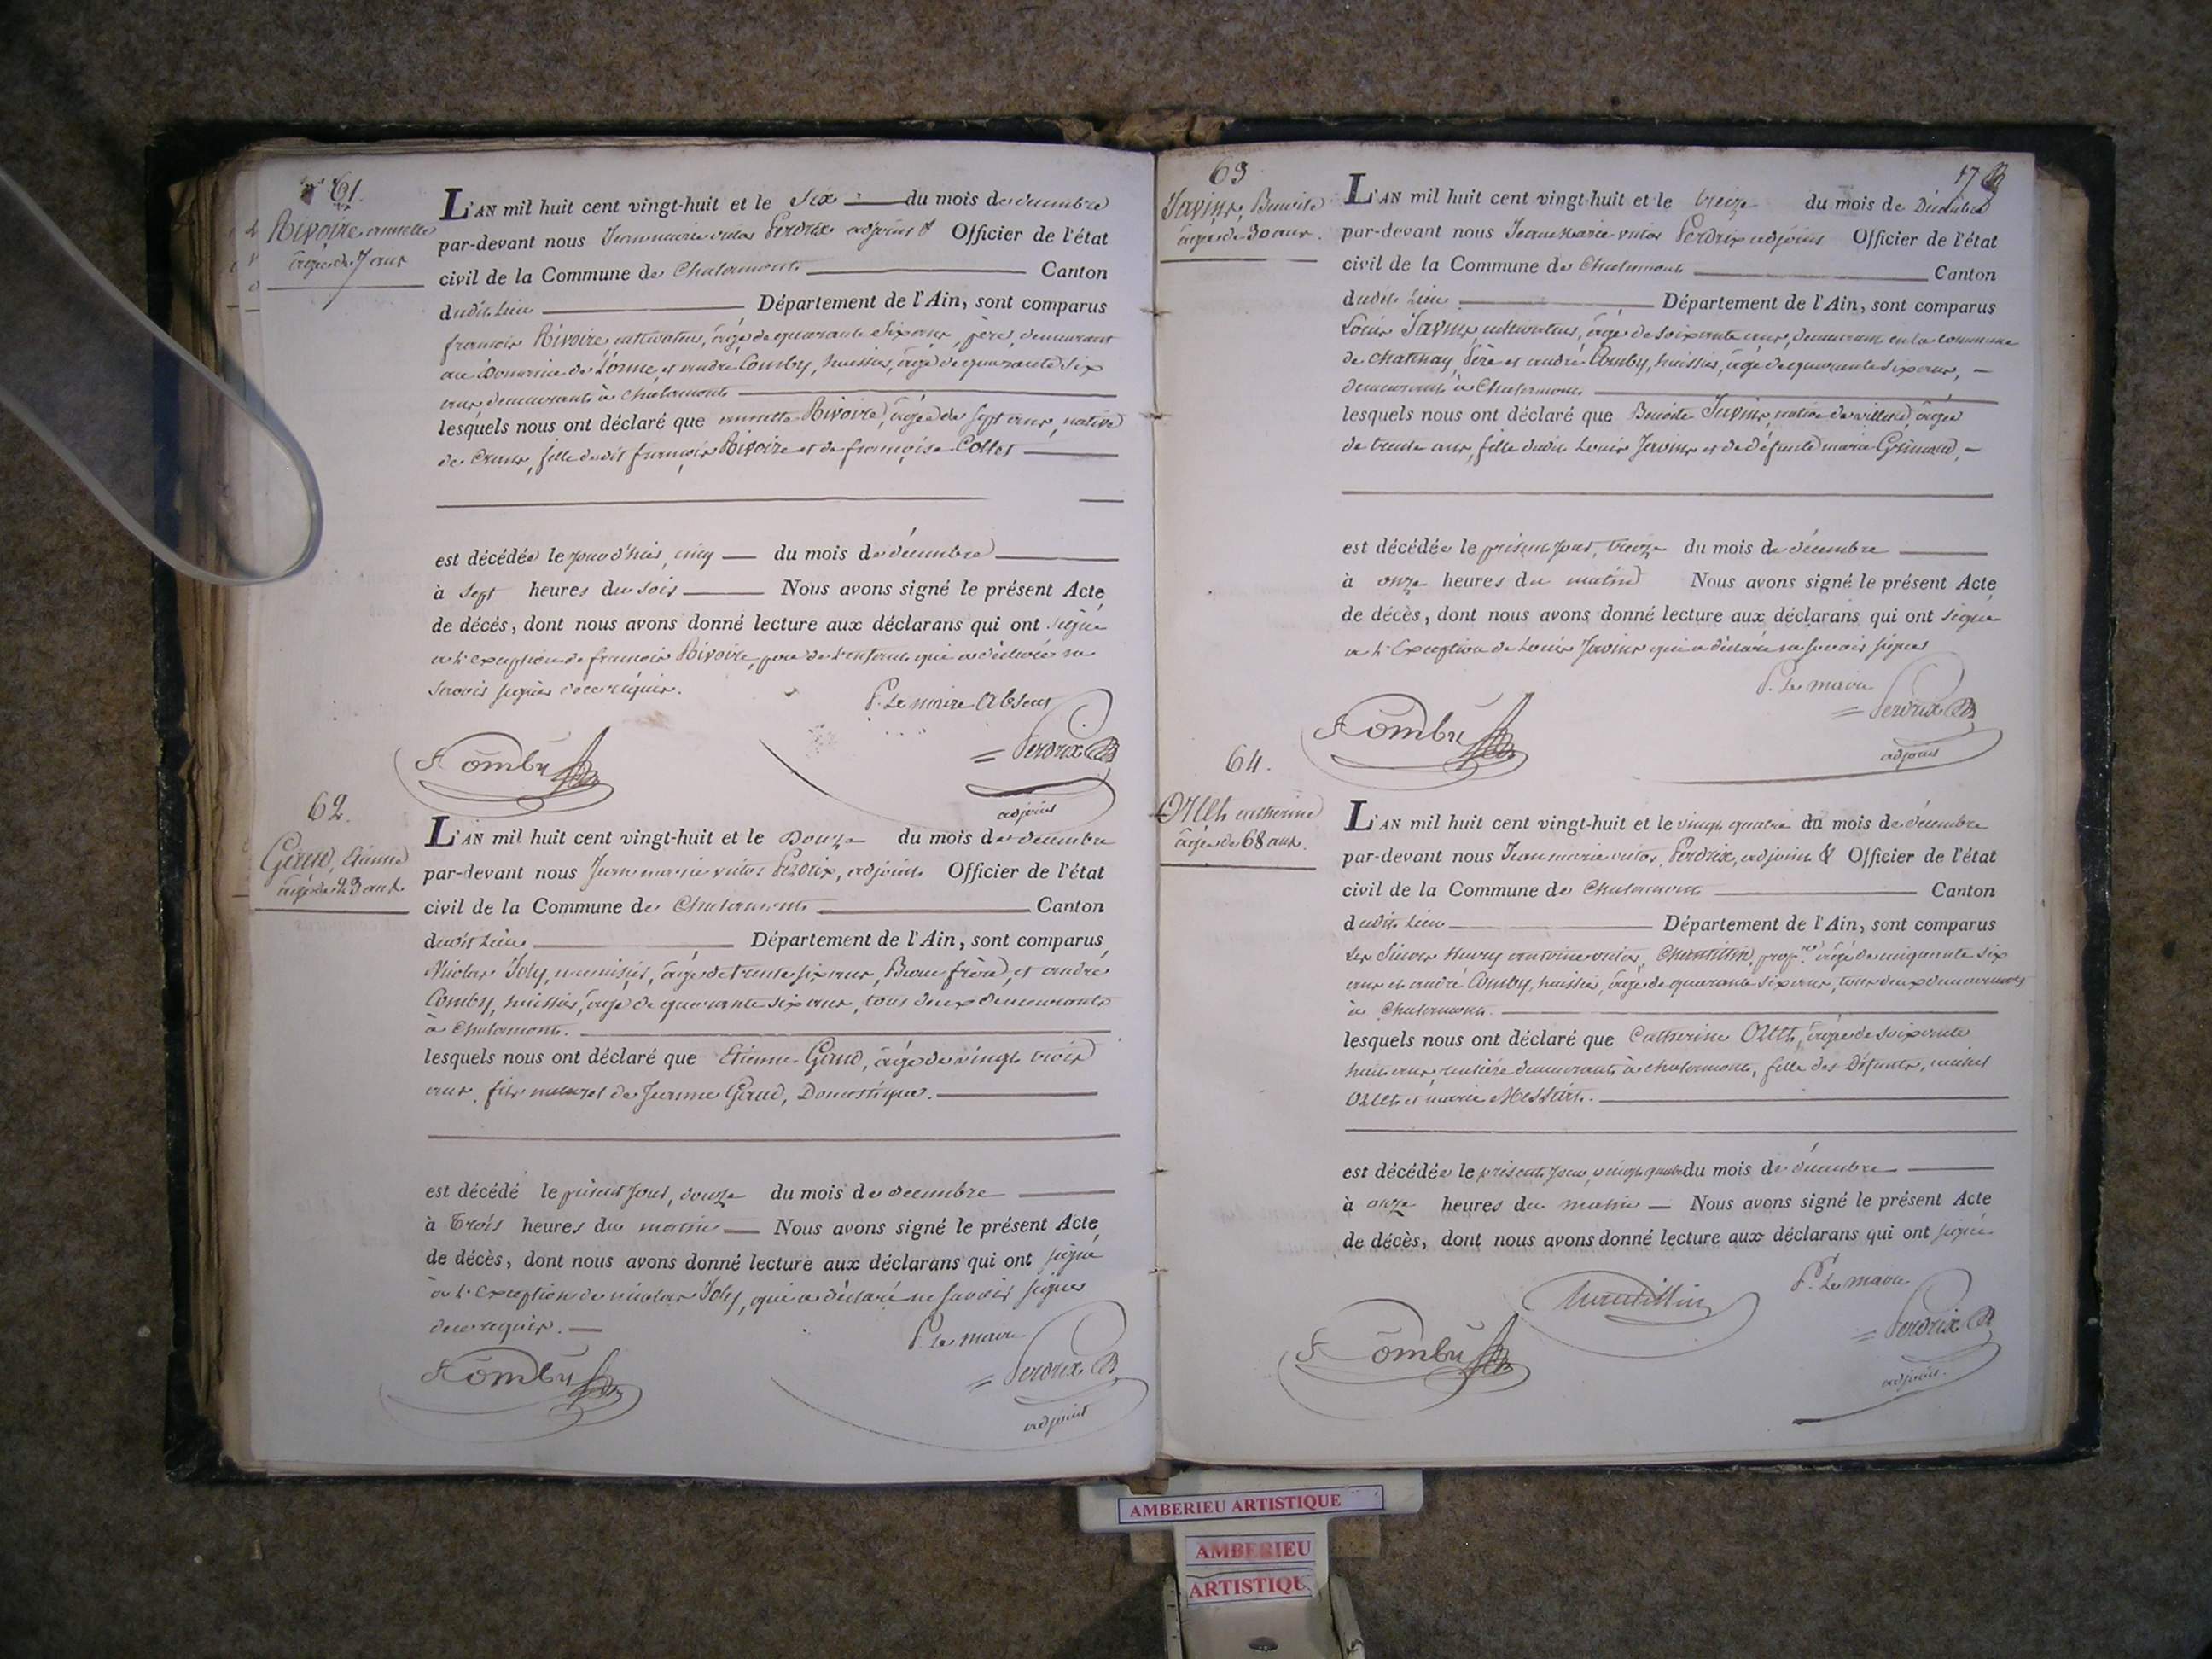 61.
Rivoire annette
âgée de 7 ans
L'AN mil huit cent vingt-huit et le six du mois de décembre
par-devant nous Jean marie victor Perdrix adjoint Officier de l'état
civil de la Commune de Chalamont Canton
dudit Lieu Département de l'Ain, sont comparus
françois Rivoire, cultivateur, âgé de quarante six ans, père, demeurant
au Domaine de et andré Comby, huissier, âgé de quarante six
ans demeurants à Chalamont
lesquels nous ont déclaré que annette Rivoire, âgée de sept ans, native
de Crans, fille dudit françois Rivoire et de françoise Collet
est décédée le jour d'hier, cinq du mois de décembre
à sept heures du soir Nous avons signé le présent Acte
de décès, dont nous avons donné lecture aux déclarans qui ont signé
à l'exception de francois Rivoire, père de l'enfant qui a déclaré ne
savoir signer de ce requis.
P. Le maire Absent
Comby
Perdrix
adjoint
62.
Giraud, Etienne
âgé de 23 ans
L'AN mil huit cent vingt-huit et le Douze du mois de décembre
par-devant nous Jean marie victor Perdrix, adjoint Officier de l'état
civil de la Commune de Chalamont Canton
dudit Lieu Département de l'Ain, sont comparus
Nicolas Joly, menuisier, âgé de trente six ans, Beau frère, et andré
Comby, huissier, âgé de quarante six ans, tous deux demeurants
à Chalamont.
lesquels nous ont déclaré que Etienne Giraud, âgé de vingt trois
ans, fils naturel de Jeanne Giraud, Domestique.
est décédé le présent jour, douze du mois de décembre
à trois heures du matin Nous avons signé le présent Acte
de décès, dont nous avons donné lecture aux déclarans qui ont signé
à l'Exception de nicolas Joly, qui a déclaré ne savoir signer
de ce requis.
P. Le maire
Comby
Perdrix
adjoint
63
17
Benoite
âgée de 30 ans.
L'AN mil huit cent vingt-huit et le treize du mois de Décembre
par-devant nous Jean Marie victor Perdrix adjoint Officier de l'état
civil de la Commune de Chalamont Canton
dudit Lieu Département de l'Ain, sont comparus
Louis cultivateur, âgé de soixante ans, demeurant en la commune
de chatenay, Père et andré Comby, huissier, âgé de quarante six ans,
demeurant à Chalamont
lesquels nous ont déclaré que Benoite native de villette, âgée
de trente ans, fille dudit Louis et de défunte marie
est décédée le présent jour, treize du mois de décembre
à onze heures du matin Nous avons signé le présent Acte
de décès, dont nous avons donné lecture aux déclarans qui ont signé
à l'Exception de Louis qui a déclaré ne savoir signer
P. Le maire
Comby
Perdrix
adjoint
64.
catherine
âgée de 68 ans.
L'AN mil huit cent vingt-huit et le vingt quatre du mois de décembre
par-devant nous Jean marie victor Perdrix, adjoint Officier de l'état
civil de la Commune de Chalamont Canton
dudit lieu Département de l'Ain, sont comparus
Les Sieurs antoine victor prop.re âgé de cinquante six
ans et andré Comby, huissier, âgé de quarante six ans, tous deux demeurants
à Chalamont.
lesquels nous ont déclaré que Catherine âgée de soixante
huit ans, rentière demeurante à chalamont, fille des Défunts, michel
et marie
est décédée le présent jour, vingt quatre du mois de décembre
à onze heures du matin Nous avons signé le présent Acte
de décès, dont nous avons donné lecture aux déclarans qui ont signé
P. Le maire
Comby
Perdrix
adjoint.
AMBERIEU ARTISTIQUE
AMBERIEU
ARTISTIQU